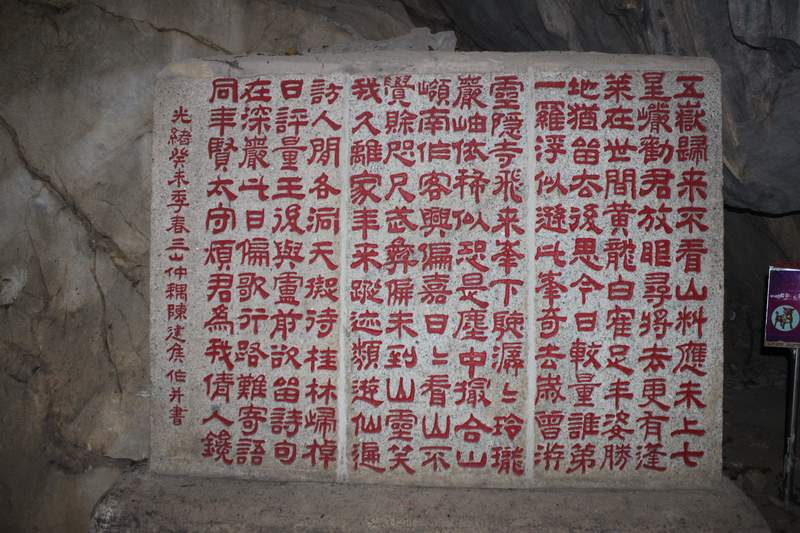 五嶽歸來不看山料應未上七
星巖勸君放眼尋將去更有蓬
萊在世間黃龍白寉足丰姿勝
地猶留去後思今日較量誰弟
一羅浮似遜此峯奇去歲曾游
靈隱寺飛來峯下聽潺〻玲瓏
巖岫依稀似恐是塵中撮合山
嶺南作客興偏嘉日〻看山不
覺賒咫尺武彝偏未到山靈笑
我久離家年來蹤迹類遊仙遍
訪人間各洞天擬待桂林歸棹
日評量王後與盧前欲留詩句
在深巖此日偏歌行路難寄語
同年賢太守煩君為我倩人鑱
光緒癸未季春三山仲耦陳建侯作并書